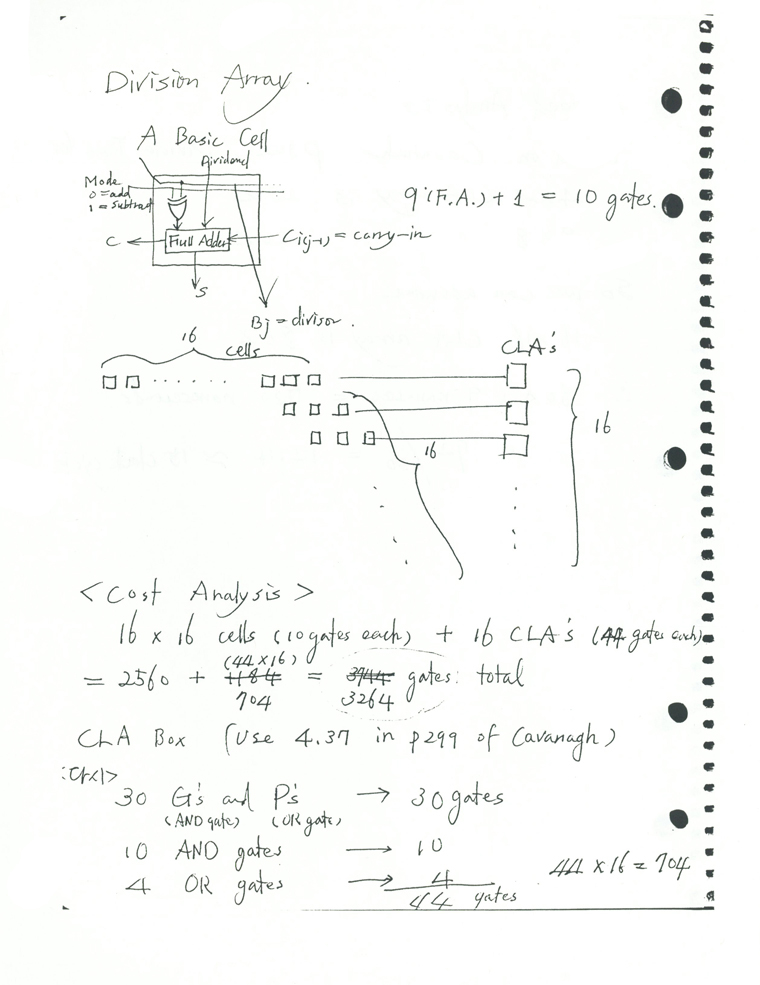 Division Array.
A Basic Cell
Dividend
Mode
0 = add
1 = subtract
9 (F.A.) + 1 = 10 gates.
C
Full Adder
Ci(j-1) = carry-in
S
Bj = divisor.
16
cells
CLA's
16
16
<Cost Analysis>
16 x 16 cells (10 gates each) + 16 CLA's (44 gates each)
(44 x 16)
= 2560 + 1184 = 3744 gates: total
704 3264
CLA Box (Use 4.37 in p299 of Cavanagh)
다시>
30 G's and P's → 30 gates
(AND gate) (OR gate)
10 AND gates → 10
4 OR gates → 4
44 x 16 = 704
44 gates